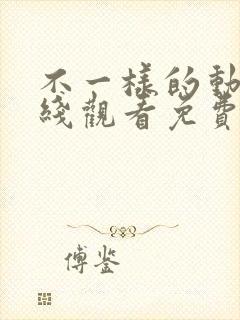 不一樣的動
綫觀看免費
傅鉴